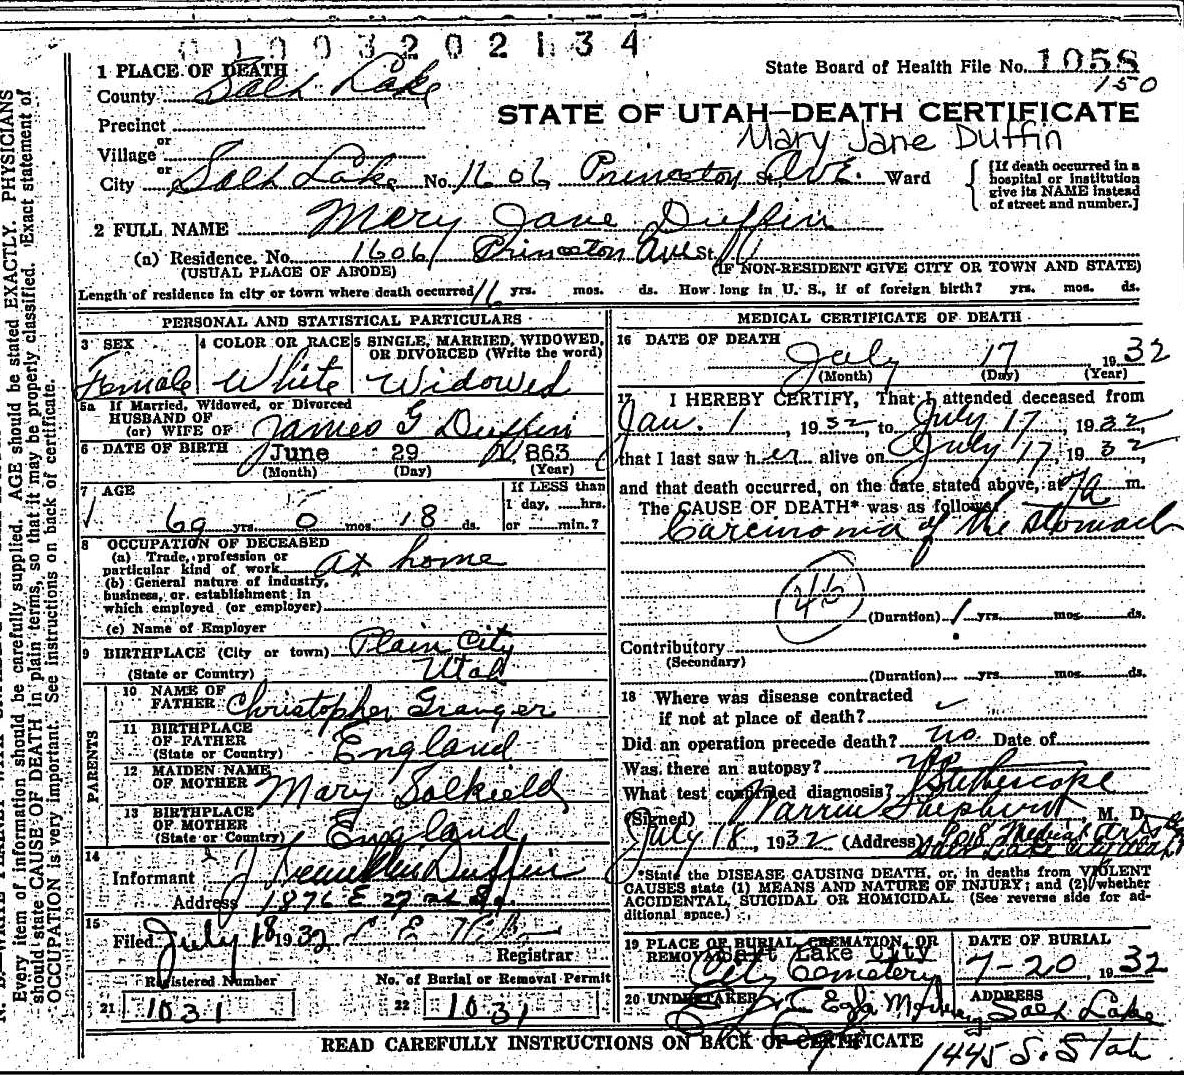 0 1 0 0 3 2 0 2 1 3 4
1 PLACE OF DEATH
County Salt Lake
State Board of Health File No. 1058
150
STATE OF UTAH—DEATH CERTIFICATE
Precinct
Mary Jane Duffin
or
Village
or
City Salt Lake No. 1606 Princeton St. Ave. Ward
[If death occurred in a
hospital or institution
give its NAME instead
of street and number.]
2 FULL NAME Mary Jane Duffin
(a) Residence. No. 1606 Princeton Ave St.
(USUAL PLACE OF ABODE) (IF NON-RESIDENT GIVE CITY OR TOWN AND STATE)
Length of residence in city or town where death occurred 16 yrs. mos. ds. How long in U. S., if of foreign birth? yrs. mos. ds.
PERSONAL AND STATISTICAL PARTICULARS
3 SEX
Female
4 COLOR OR RACE
White
5 SINGLE, MARRIED, WIDOWED,
OR DIVORCED (Write the word)
Widowed
5a If Married, Widowed, or Divorced
HUSBAND OF
(or) WIFE OF James G Duffin
6 DATE OF BIRTH June 29 1, 863
(Month) (Day) (Year)
7 AGE
69 yrs. 0 mos. 18 ds.
If LESS than
1 day, ......hrs.
or ......min.?
8 OCCUPATION OF DECEASED
(a) Trade, profession or
particular kind of work at home
(b) General nature of industry,
business, or establishment in
which employed (or employer)
(c) Name of Employer
9 BIRTHPLACE (City or town) Plain City
(State or Country) Utah
PARENTS
10 NAME OF
FATHER Christopher Granger
11 BIRTHPLACE
OF FATHER
(State or Country) England
12 MAIDEN NAME
OF MOTHER Mary Salkield
13 BIRTHPLACE
OF MOTHER
(State or Country) England
14
Informant J Duffin
Address 1876 E 27 So.
15
Filed July 18 1932
Registrar
Registered Number
21 1031
No. of Burial or Removal Permit
22 1031
MEDICAL CERTIFICATE OF DEATH
16 DATE OF DEATH
July 17 1932
(Month) (Day) (Year)
17 I HEREBY CERTIFY, That I attended deceased from
Jan. 1, 1932, to July 17, 1932,
that I last saw her alive on July 17, 1932,
and that death occurred, on the date stated above, at 7a m.
The CAUSE OF DEATH* was as follows:
Carcinoma of the stomach
46
(Duration) 1 yrs. mos. ds.
Contributory
(Secondary)
(Duration) yrs. mos. ds.
18 Where was disease contracted
if not at place of death?
Did an operation precede death? no Date of
Was there an autopsy? no
What test confirmed diagnosis? Stethoscope
(Signed) Warren Shepherd, M. D.
July 18, 1932 (Address) Medical Arts
Salt Lake City Utah
*State the DISEASE CAUSING DEATH, or, in deaths from VIOLENT
CAUSES state (1) MEANS AND NATURE OF INJURY; and (2) whether
ACCIDENTAL, SUICIDAL OR HOMICIDAL. (See reverse side for ad-
ditional space.)
19 PLACE OF BURIAL, CREMATION, OR
REMOVAL Salt Lake City
City Cemetery
DATE OF BURIAL
7-20, 1932
20 UNDERTAKER
ADDRESS
Salt Lake
1445 S. State
READ CAREFULLY INSTRUCTIONS ON BACK OF CERTIFICATE
Every item of information should be carefully supplied. AGE should be stated EXACTLY. PHYSICIANS
should state CAUSE OF DEATH in plain terms, so that it may be properly classified. Exact statement of
OCCUPATION is very important. See instructions on back of certificate.